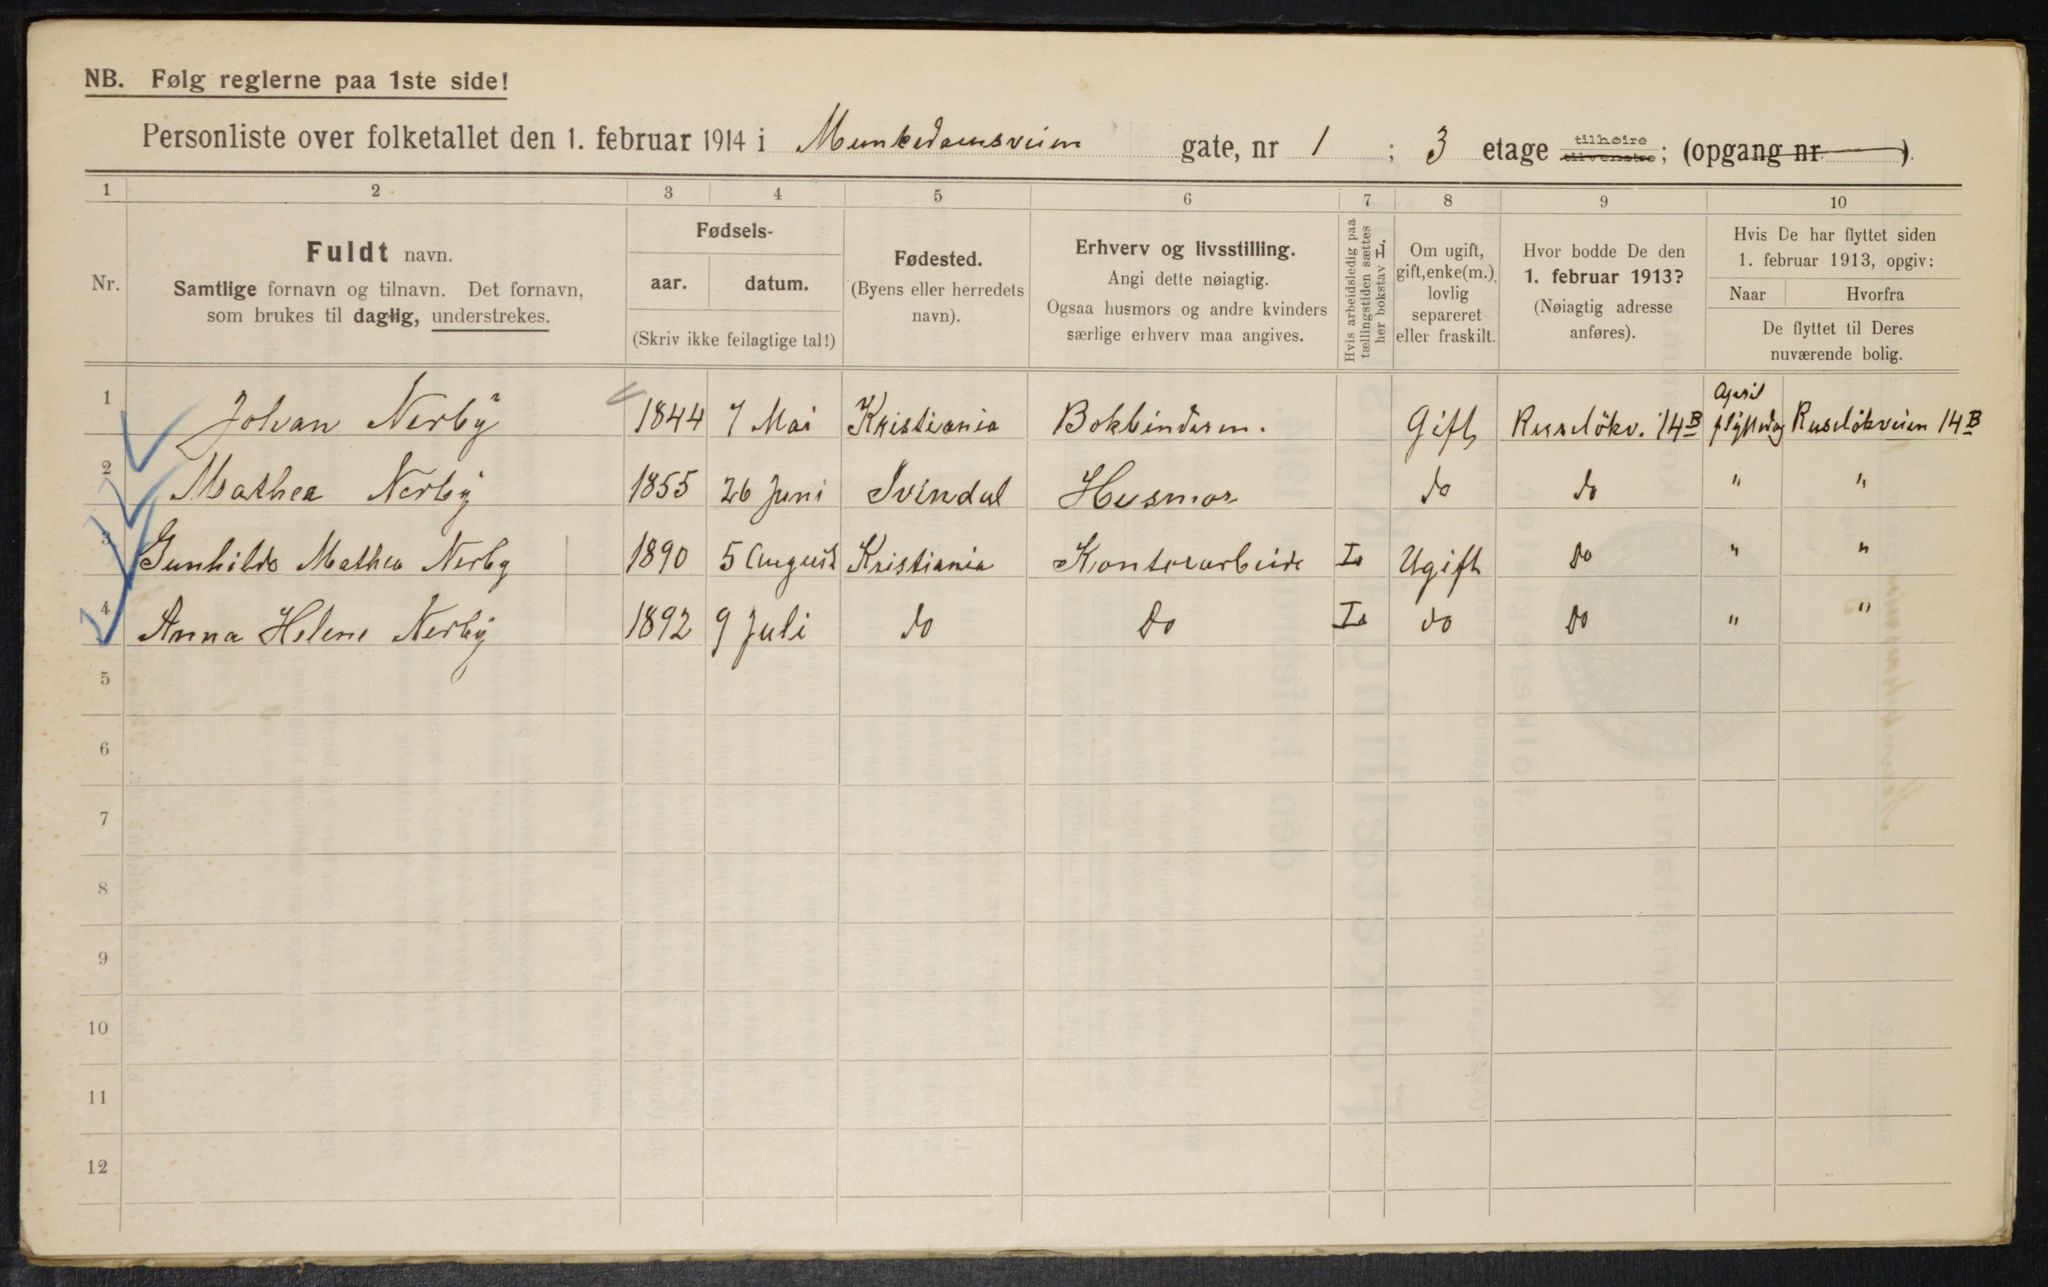 NB. Følg reglerne paa 1ste side!
Personliste over folketallet den 1. februar 1914 i Munkedamsveien gate, nr 1 ; 3 etage tilhøire tilvenstre; (opgang nr )
1 2 3 4 5 6 7 8 9 10
Nr.
Fuldt navn.
Samtlige fornavn og tilnavn. Det fornavn,
som brukes til daglig, understrekes.
Fødsels-
aar. datum.
(Skriv ikke feilagtige tal!)
Fødested.
(Byens eller herredets
navn).
Erhverv og livsstilling.
Angi dette nøiagtig.
Ogsaa husmors og andre kvinders
særlige erhverv maa angives.
Hvis arbeidsledig paa
tællingstiden sættes
her bokstav L.
Om ugift,
gift, enke(m.),
lovlig
separeret
eller fraskilt.
Hvor bodde De den
1. februar 1913?
(Nøiagtig adresse
anføres).
Hvis De har flyttet siden
1. februar 1913, opgiv:
Naar Hvorfra
De flyttet til Deres
nuværende bolig.
1 Johan Nerby 1844 7 Mai Kristiania Bokbinderm. Gift Ruseløkv. 14B April flyttedag Ruseløkveien 14B
2 Mathea Nerby 1855 26 Juni Svindal Husmor do do " "
3 Gunhilda Mathea Nerby 1890 5 August Kristiania Kontorarbeide Ugift do " "
4 Anna Helene Nerby 1892 9 Juli do do do do " "
5
6
7
8
9
10
11
12